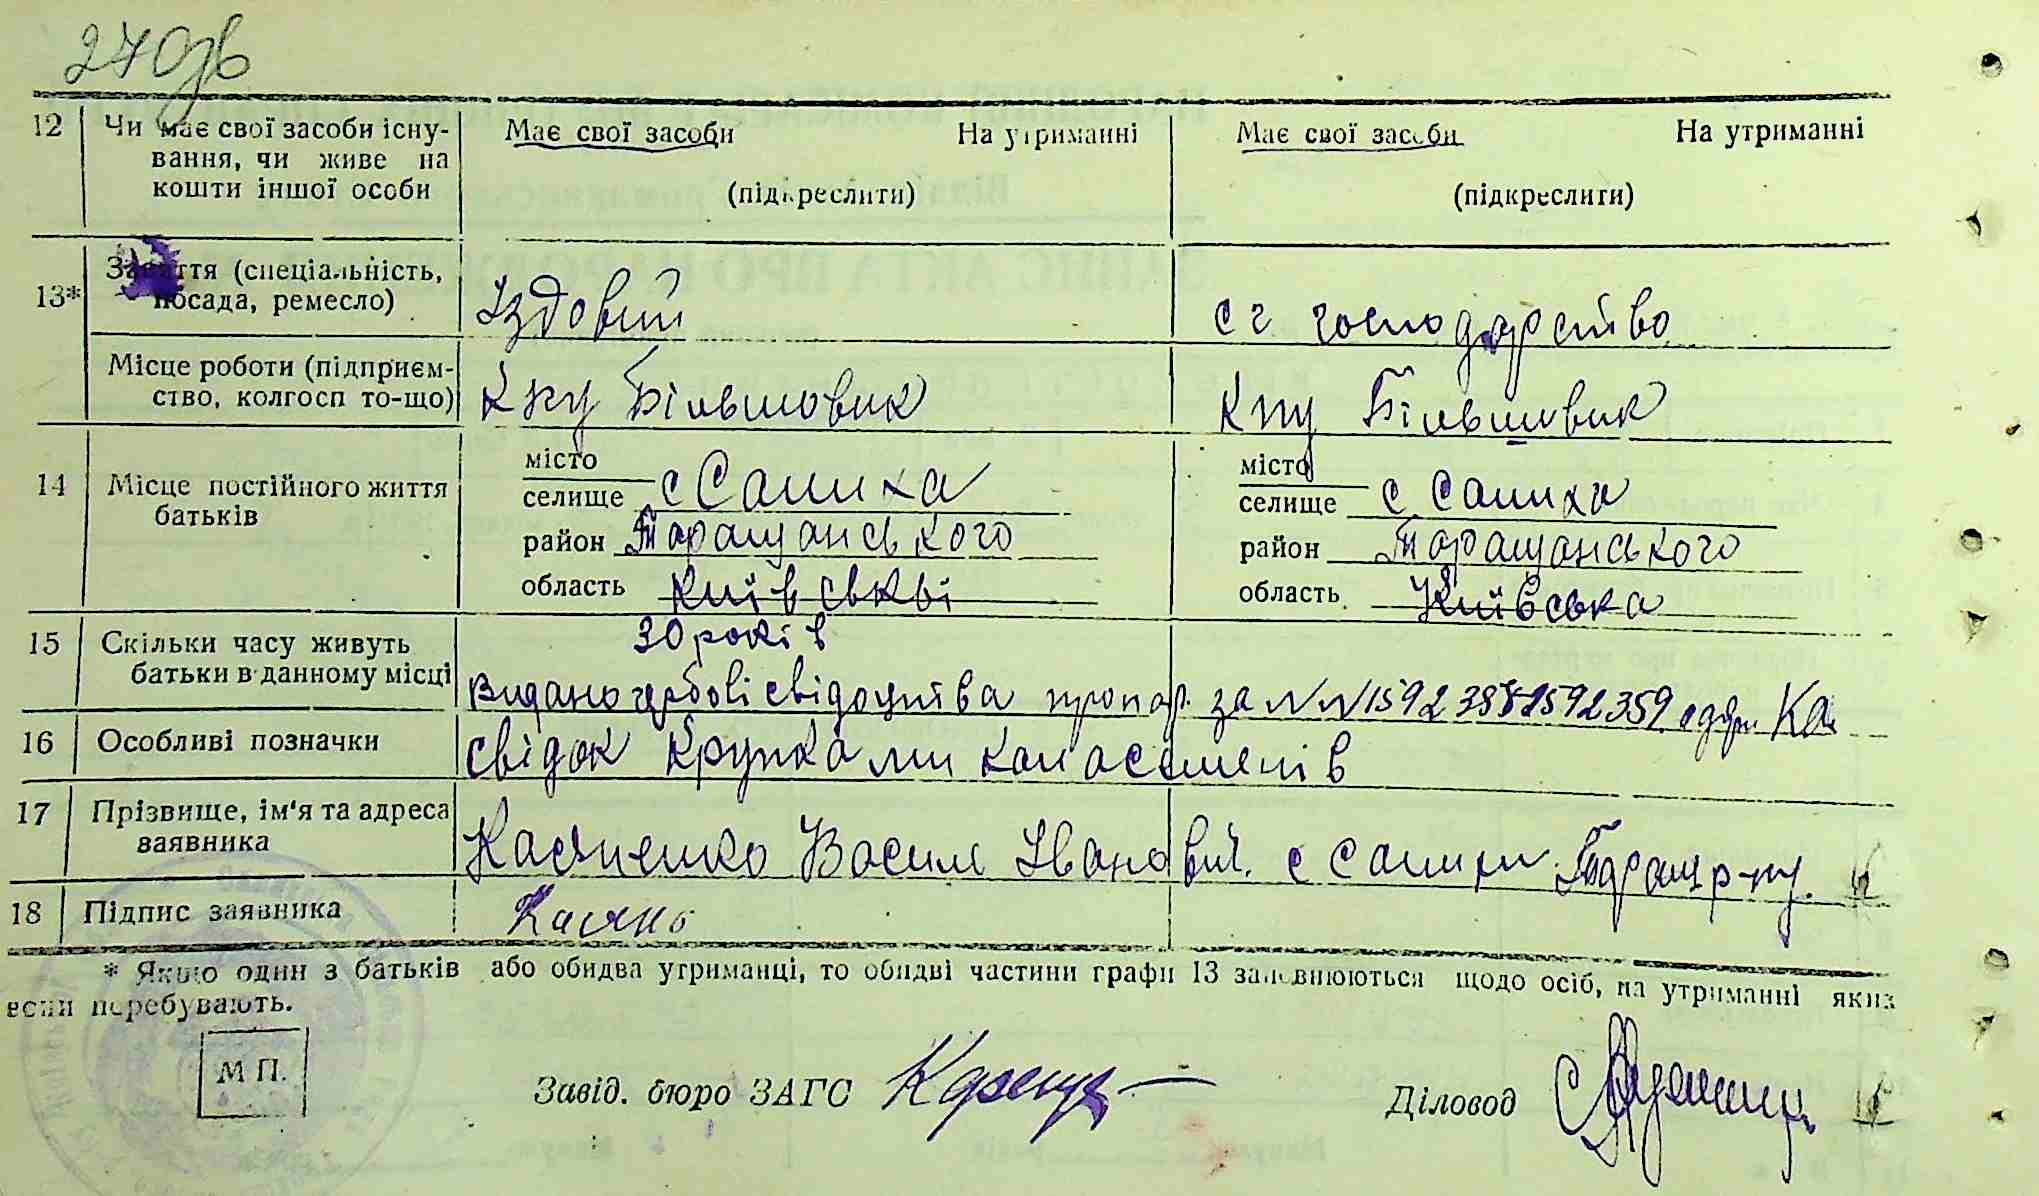 270зв
12 Чи має свої засоби існу- Має свої засоби На утриманні Має свої засоби На утриманні
вання, чи живе на
кошти іншої особи (підкреслити) (підкреслити)
13* Заняття (спеціальність,
посада, ремесло) Їздовий с г господарство
Місце роботи (підприєм-
ство, колгосп то-що) Кпу Більшовик Кпу Більшовик
14 Місце постійного життя
батьків
місто місто
селище с Салиха селище с Салиха
район Таращанського район Таращанського
область Київські область Київська
15 Скільки часу живуть 30 років
батьки в данному місці
Видано гербові свідоцтва про нар. за NN 1592358 1592359 одерж
16 Особливі позначки свідок
17 Прізвище, ім'я та адреса
заявника Касяненко Василь Іванович. с Салихи Таращ р-ну.
18 Підпис заявника Касянь
* Якщо один з батьків або обидва утриманці, то обидві частини графи 13 заповнюються щодо осіб, на утриманні яких
вони перебувають.
М П.
Завід. бюро ЗАГС Діловод